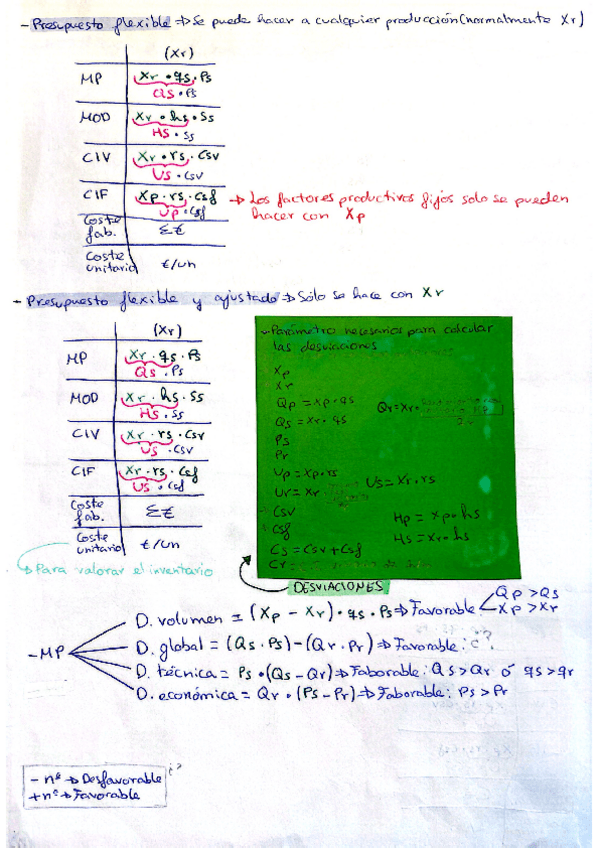 - Presupuesto flexible → Se puede hacer a cualquier producción (normalmente Xr)
(Xr)
MP Xr · qs · Ps
Qs · Ps
MOD Xr · hs · Ss
Hs · Ss
CIV Xr · rs · Csv
Us · Csv
CIF Xp · rs · Csf → Los factores productivos fijos solo se pueden
Up · Csf hacer con Xp
Coste fab. Σ€
Coste unitario €/un
- Presupuesto flexible y ajustado → Sólo se hace con Xr
(Xr)
MP Xr · qs · Ps
Qs · Ps
MOD Xr · hs · Ss
Hs · Ss
CIV Xr · rs · Csv
Us · Csv
CIF Xr · rs · Csf
Us · Csf
Coste fab. Σ€
Coste unitario €/un
→ Para valorar el inventario
- Parámetro necesarios para calcular
las desviaciones
Xp
Xr
Qp = Xp · qs
Qr = Xr ·
Qs = Xr · qs
Ps
Pr
Up = Xp · rs
Us = Xr · rs
Ur = Xr
Csv
Hp = Xp · hs
Csf
Hs = Xr · hs
Cs = Csv + Csf
Cr =
DESVIACIONES
- MP
D. volumen = (Xp - Xr) · qs · Ps → Favorable Qp > Qs
Xp > Xr
D. global = (Qs · Ps) - (Qr · Pr) → Favorable: ¿?
D. técnica = Ps · (Qs - Qr) → Faborable: Qs > Qr ó qs > qr
D. económica = Qr · (Ps - Pr) → Faborable: Ps > Pr
- nº → Desfavorable ¿?
+ nº → Favorable